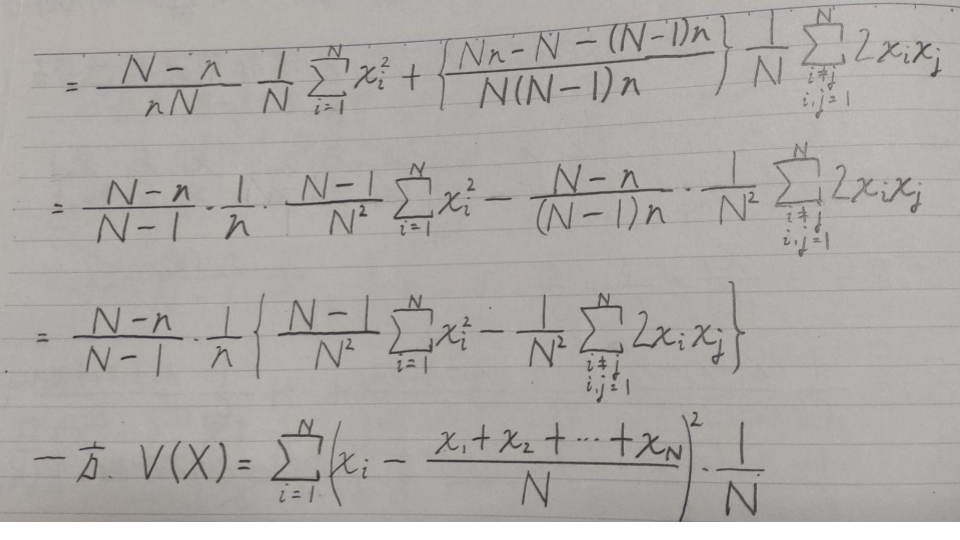 = \frac{N-n}{nN} \frac{1}{N} \sum_{i=1}^{N} x_i^2 + \left\{ \frac{Nn-N-(N-1)n}{N(N-1)n} \right\} \frac{1}{N} \sum_{\substack{i \neq j \\ i,j=1}}^{N} 2x_i x_j
= \frac{N-n}{N-1} \cdot \frac{1}{n} \cdot \frac{N-1}{N^2} \sum_{i=1}^{N} x_i^2 - \frac{N-n}{(N-1)n} \cdot \frac{1}{N^2} \sum_{\substack{i \neq j \\ i,j=1}}^{N} 2x_i x_j
= \frac{N-n}{N-1} \cdot \frac{1}{n} \left\{ \frac{N-1}{N^2} \sum_{i=1}^{N} x_i^2 - \frac{1}{N^2} \sum_{\substack{i \neq j \\ i,j=1}}^{N} 2x_i x_j \right\}
一方. V(X) = \sum_{i=1}^{N} \left( x_i - \frac{x_1+x_2+\cdots+x_N}{N} \right)^2 \cdot \frac{1}{N}